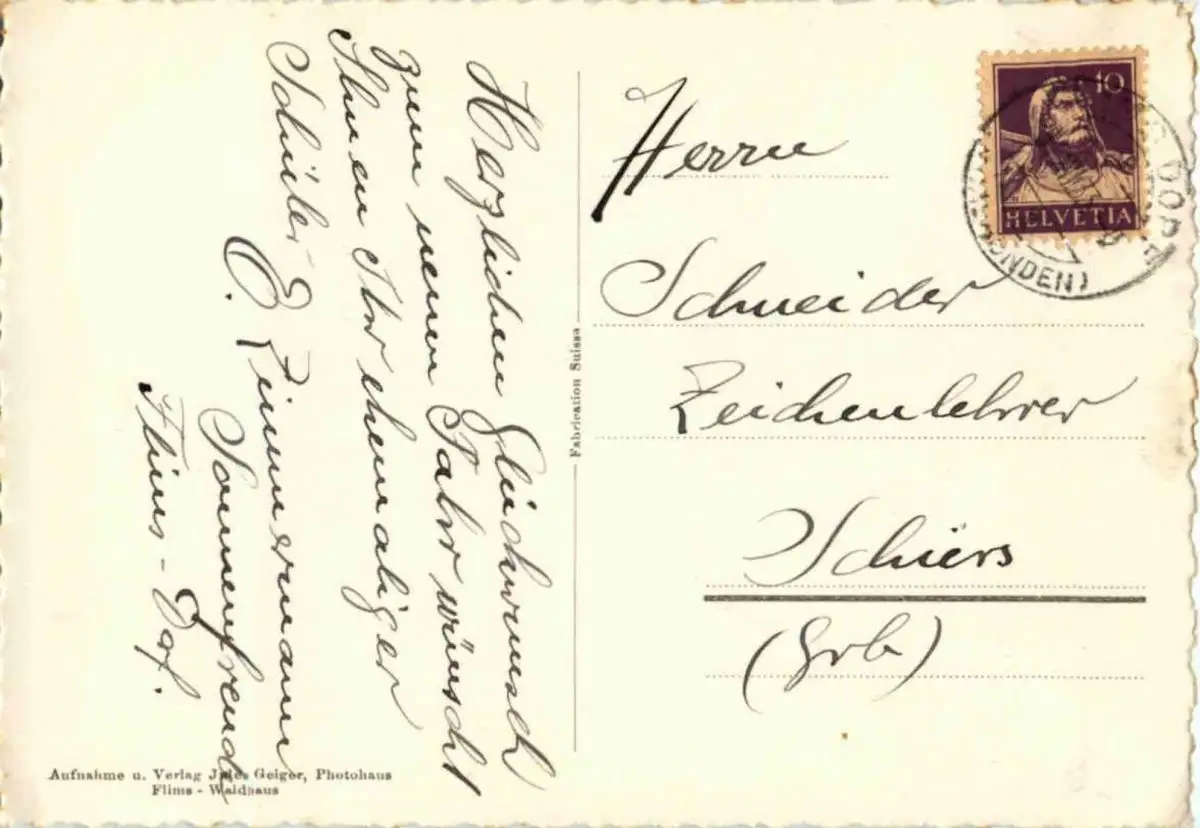 Herzlichen Glückwunsch
zum neuen Jahr wünscht
Ihnen Ihr ehemaliger
Schüler
O. Zimmermann
Sonnenfreude
Flims-Dof.
Fabrication Suisse
10
HELVETIA
DORF
Herrn
Schneider
Zeichenlehrer
Schiers
(Grb)
Aufnahme u. Verlag Jules Geiger, Photohaus
Flims - Waldhaus